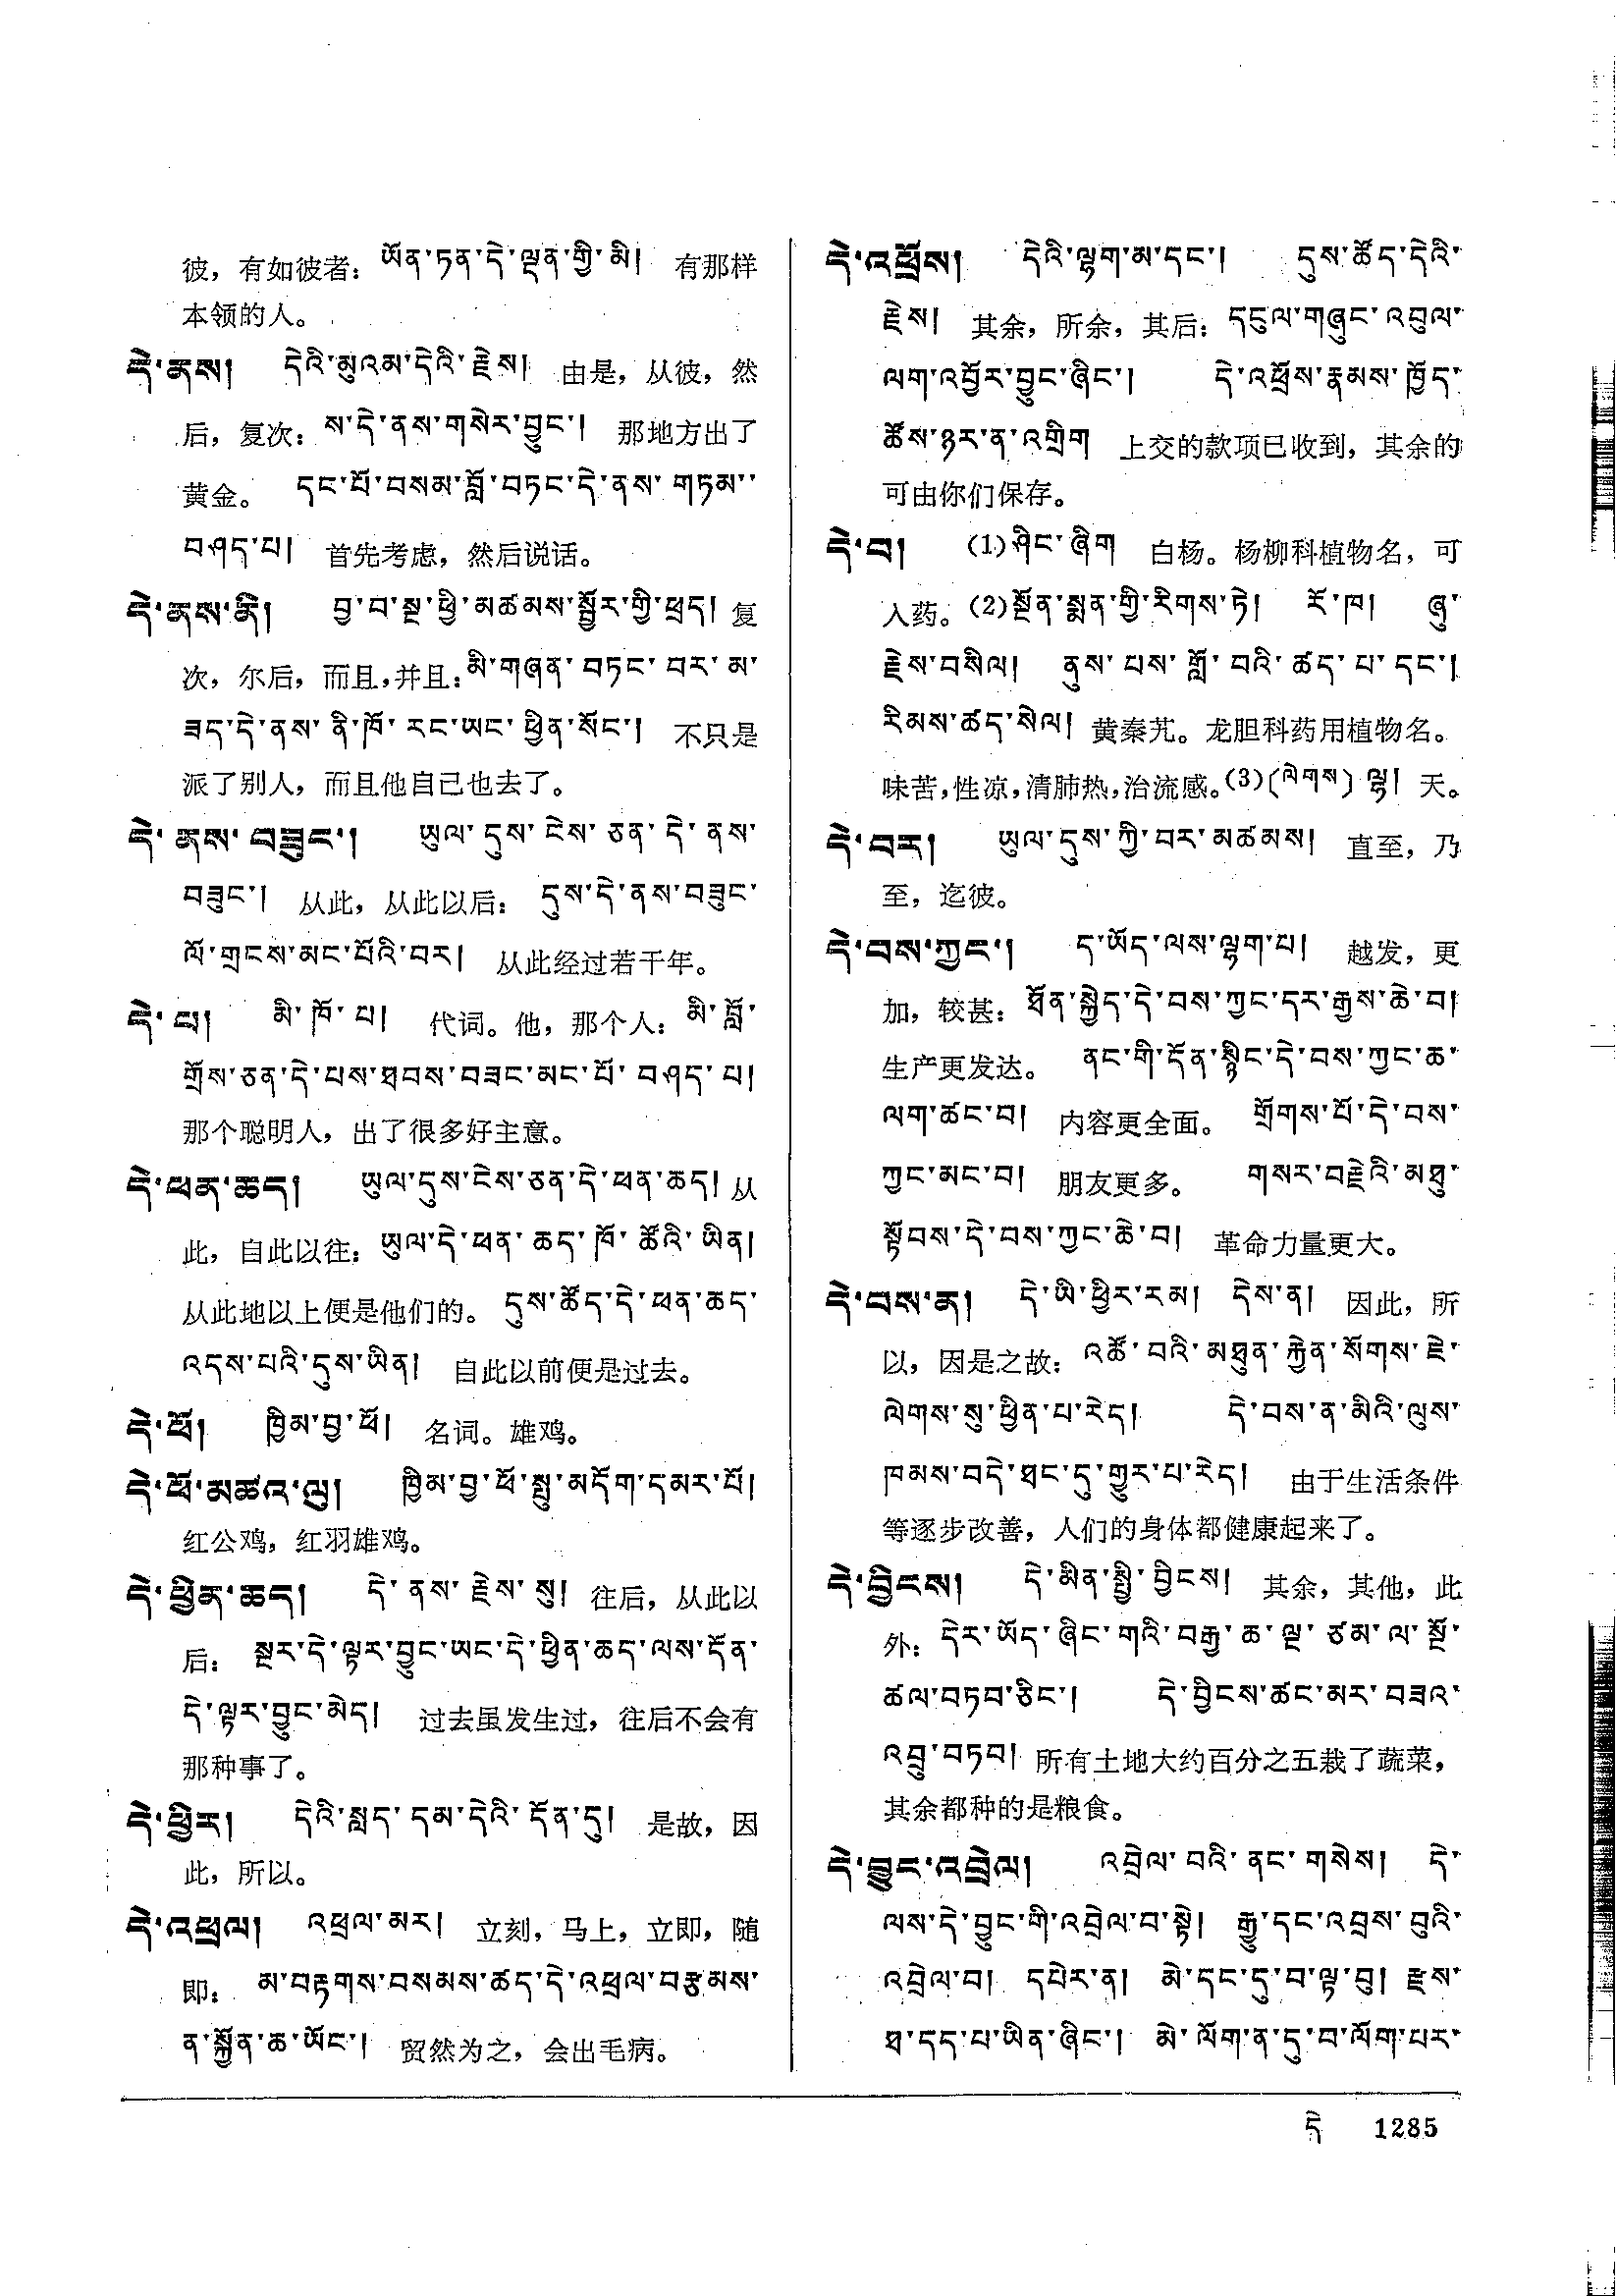 彼，有如彼者：ཡོན་ཏན་དེ་ལྡན་གྱི་མི། 有那样
本领的人。
དེ་ནས། དེའི་མུའམ་དེའི་རྗེས། 由是，从彼，然
后，复次：ས་དེ་ནས་གསེར་བྱུང་། 那地方出了
黄金。 དང་པོ་བསམ་བློ་བཏང་དེ་ནས་གཏམ་
བཤད་པ། 首先考虑，然后说话。
དེ་ནས་ནི། བྱ་བ་སྔ་ཕྱི་མཚམས་སྦྱོར་གྱི་ཕྲད། 复
次，尔后，而且，并且：མི་གཞན་བཏང་བར་མ་
ཟད་དེ་ནས་ནི་ཁོ་རང་ཡང་ཕྱིན་སོང་། 不只是
派了别人，而且他自己也去了。
དེ་ནས་བཟུང་། ཡུལ་དུས་ངེས་ཅན་དེ་ནས་
བཟུང་། 从此，从此以后：དུས་དེ་ནས་བཟུང་
ལོ་གྲངས་མང་པོའི་བར། 从此经过若干年。
དེ་པ། མི་ཁོ་པ། 代词。他，那个人：མི་བློ་
གྲོས་ཅན་དེ་པས་ཐབས་བཟང་མང་པོ་བཤད་པ།
那个聪明人，出了很多好主意。
དེ་ཕན་ཆད། ཡུལ་དུས་ངེས་ཅན་དེ་ཕན་ཆད། 从
此，自此以往：ཡུལ་དེ་ཕན་ཆད་ཁོ་ཚོའི་ཡིན།
从此地以上便是他们的。 དུས་ཚོད་དེ་ཕན་ཆད་
འདས་པའི་དུས་ཡིན། 自此以前便是过去。
དེ་ཕོ། ཁྱིམ་བྱ་ཕོ། 名词。雄鸡。
དེ་ཕོ་མཚའ་ལུ། ཁྱིམ་བྱ་ཕོ་སྤུ་མདོག་དམར་པོ།
红公鸡，红羽雄鸡。
དེ་ཕྱིན་ཆད། དེ་ནས་རྗེས་སུ། 往后，从此以
后： སྔར་དེ་ལྟར་བྱུང་ཡང་དེ་ཕྱིན་ཆད་ལས་དོན་
དེ་ལྟར་བྱུང་མེད། 过去虽发生过，往后不会有
那种事了。
དེ་ཕྱིར། དེའི་སླད་དམ་དེའི་དོན་དུ། 是故，因
此，所以。
དེ་འཕྲལ། འཕྲལ་མར། 立刻，马上，立即，随
即： མ་བརྟགས་བསམས་ཚད་དེ་འཕྲལ་བརྩམས་
ན་སྐྱོན་ཆ་ཡོང་། 贸然为之，会出毛病。
དེ་འཕྲོས། དེའི་ལྷག་མ་དང་། དུས་ཚོད་དེའི་
རྗེས། 其余，所余，其后：དངུལ་གཞུང་འབུལ་
ལག་འབྱོར་བྱུང་ཞིང་། དེ་འཕྲོས་རྣམས་ཁྱོད་
ཚོས་ཉར་ན་འགྲིག 上交的款项已收到，其余的
可由你们保存。
དེ་བ། (1)ཤིང་ཞིག 白杨。杨柳科植物名，可
入药。(2)སྔོན་སྨན་གྱི་རིགས་ཏེ། རོ་ཁ། ཞུ་
རྗེས་བསིལ། ནུས་པས་གློ་བའི་ཚད་པ་དང་།
རིམས་ཚད་སེལ། 黄秦艽。龙胆科药用植物名。
味苦，性凉，清肺热，治流感。(3)(ལེགས) ལྷ། 天。
དེ་བར། ཡུལ་དུས་ཀྱི་བར་མཚམས། 直至，乃
至，迄彼。
དེ་བས་ཀྱང་། ད་ཡོད་ལས་ལྷག་པ། 越发，更
加，较甚：ཐོན་སྐྱེད་དེ་བས་ཀྱང་དར་རྒྱས་ཆེ་བ།
生产更发达。 ནང་གི་དོན་སྙིང་དེ་བས་ཀྱང་ཆ་
ལག་ཚང་བ། 内容更全面。 གྲོགས་པོ་དེ་བས་
ཀྱང་མང་བ། 朋友更多。 གསར་བརྗེའི་མཐུ་
སྟོབས་དེ་བས་ཀྱང་ཆེ་བ། 革命力量更大。
དེ་བས་ན། དེ་ཡི་ཕྱིར་རམ། དེས་ན། 因此，所
以，因是之故：འཚོ་བའི་མཐུན་རྐྱེན་སོགས་ཇེ་
ལེགས་སུ་ཕྱིན་པ་རེད། དེ་བས་ན་མིའི་ལུས་
ཁམས་བདེ་ཐང་དུ་གྱུར་པ་རེད། 由于生活条件
等逐步改善，人们的身体都健康起来了。
དེ་བྱིངས། དེ་མིན་སྤྱི་བྱིངས། 其余，其他，此
外：དེར་ཡོད་ཞིང་གའི་བརྒྱ་ཆ་ལྔ་ཙམ་ལ་སྔོ་
ཚལ་བཏབ་ཅིང་། དེ་བྱིངས་ཚང་མར་བཟའ་
འབྲུ་བཏབ། 所有土地大约百分之五栽了蔬菜，
其余都种的是粮食。
དེ་བྱུང་འབྲེལ། འབྲེལ་བའི་ནང་གསེས། དེ་
ལས་དེ་བྱུང་གི་འབྲེལ་བ་སྟེ། རྒྱུ་དང་འབྲས་བུའི་
འབྲེལ་བ། དཔེར་ན། མེ་དང་དུ་བ་ལྟ་བུ། རྫས་
ཐ་དད་པ་ཡིན་ཞིང་། མེ་ལོག་ན་དུ་བ་ལོག་པར་
དེ 1285